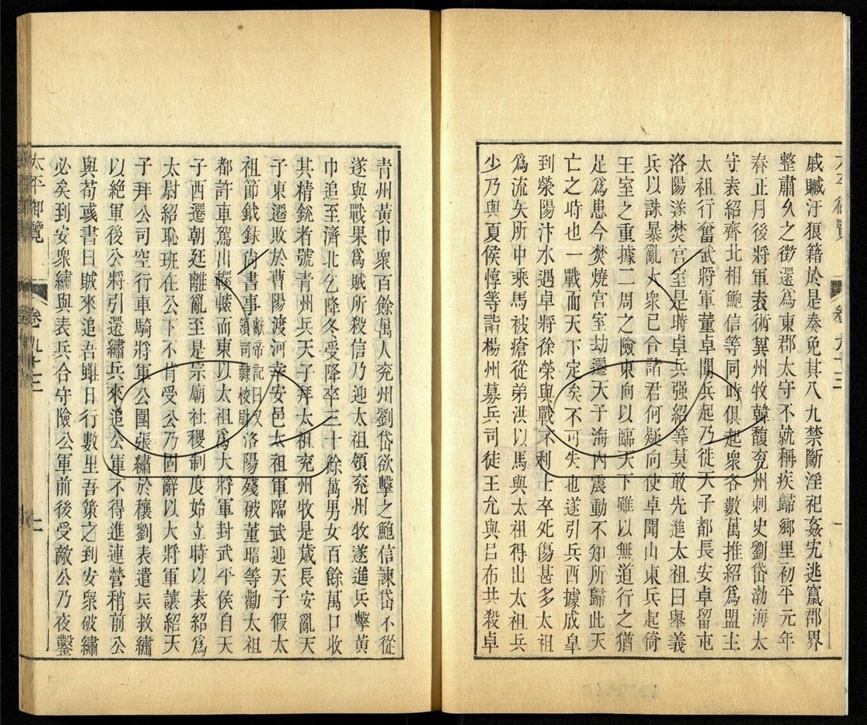 戚贓汙狼籍於是奏免其八九禁斷淫祀姦宄逃竄郡界
整肅久之徵還為東郡太守不就稱疾歸鄉里初平元年
春正月後將軍袁術兾州牧韓馥兖州刺史劉岱渤海太
守袁紹齊北相鮑信等同時俱起衆各數萬推紹為盟主
太祖行奮武將軍董卓聞兵起乃徙天子都長安卓留屯
洛陽遂焚宮室是時卓兵强紹等莫敢先進太祖曰舉義
兵以誅暴亂大衆已合諸君何疑向使卓聞山東兵起倚
王室之重據二周之險東向以臨天下雖以無道行之猶
足為患今焚燒宮室劫遷天子海內震動不知所歸此天
亡之時也一戰而天下定矣不可失也遂引兵西據成皐
到滎陽汴水遇卓將徐榮與戰不利士卒死傷甚多太祖
為流矢所中乘馬被瘡從弟洪以馬與太祖得出太祖兵
少乃與夏侯惇等詣楊州募兵司徒王允與呂布共殺卓
青州黃巾衆百餘萬人兖州劉岱欲擊之鮑信諫岱不從
遂與戰果為賊所殺信乃迎太祖領兖州牧遂進兵擊黃
巾追至濟北乞降冬受降卒三十餘萬男女百餘萬口收
其精銳者號青州兵天子拜太祖兖州牧是歲長安亂天
子東遷敗於曹陽渡河幸安邑太祖軍臨武迎天子假太
祖節鉞錄尚書事獻帝記曰又領司隸校尉洛陽殘破董昭等勸太祖
都許車駕出轘轅而東以太祖為大將軍封武平侯自天
子西遷朝廷離亂至是宗廟社稷制度始立時以袁紹為
太尉紹恥班在公下不肯受公乃固辭以大將軍讓紹天
子拜公司空行車騎將軍公圍張繡於穰劉表遣兵救繡
以絕軍後公將引還繡兵來追公軍不得進連營稍前公
與荀彧書曰賊來追吾雖日行數里吾策之到安衆破繡
必矣到安衆繡與表兵合守險公軍前後受敵公乃夜鑿
太平御覽
卷九十三